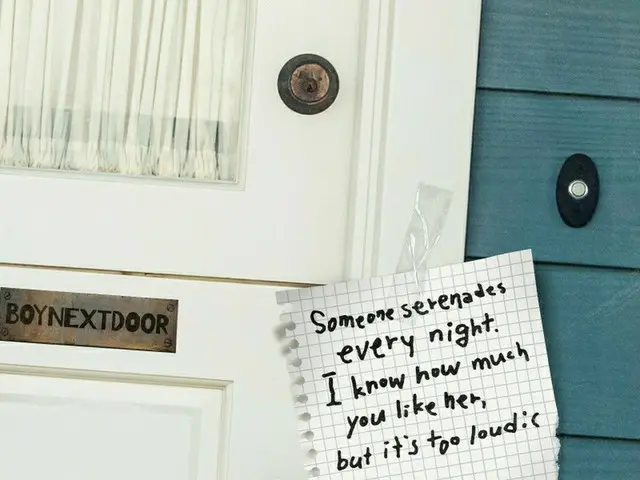 BOYNEXTDOOR
Someone serenades
every night.
I know how much
you like her,
but it's too loud:c